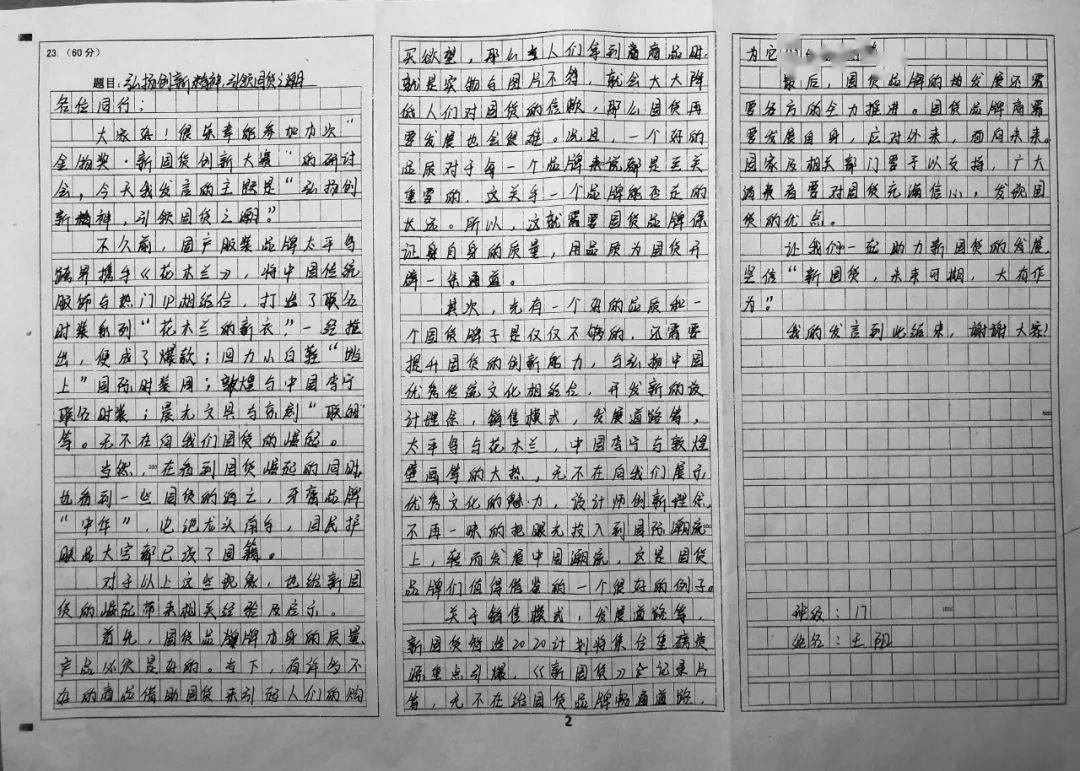 23.（60分）
题目：弘扬创新精神,引领国货之潮
各位同行：
大家好！很荣幸能参加本次“
金物奖·新国货创新大赛”的研讨
会，今天我发言的主题是“弘扬创
新精神，引领国货之潮。”
不久前，国产服装品牌太平鸟
跨界携手《花木兰》，将中国传统
服饰与热门IP相结合，打出了联名
时装系列“花木兰的新衣”一经推
出，便成了爆款；回力小白鞋“地
上”国际时装周；敦煌与中国李宁
联名时装；晨光文具与京剧“联姻”
等。无不在向我们国货的崛起。
当然，在看到国货崛起的同时，
也看到一些国货的消亡，牙膏品牌
“中华”，电池龙头南孚，国民护
肤品大宝都已成了回籍。
对于以上这些现象，也给新国
货的崛起带来相关经验及启示。
首先，国货品牌本身的质量、
产品必然是好的。当下，有许多不
好的商品借助国货来引起人们的购
买欲望，那么当人们拿到商品时，
就是实物与图片不符，就会大大降
低人们对国货的信赖，那么国货再
要发展也会很难。况且，一个好的
品质对于每一个品牌来说都是至关
重要的，这关乎一个品牌能否走的
长远。所以，这就需要国货品牌保
证自身的质量，用品质为国货开
辟一条通道。
其次，光有一个好的品质和一
个国货牌子是仅仅不够的，还需要
提升国货的创新能力，与弘扬中国
优秀传统文化相结合，开发新的设
计理念，销售模式，发展道路等，
太平鸟与花木兰，中国李宁与敦煌
壁画等的大热，无不在向我们展示
优秀文化的魅力，设计师创新理念，
不再一味的把眼光投入到国际潮流
上，转而发展中国潮流，这是国货
品牌们值得借鉴的一个很好的例子。
关于销售模式，发展道路等，
新国货智造2020计划将集合重磅资
源重点引爆，《新国货》全记录片
等，无不在给国货品牌畅通道路，
为它
最后，国货品牌的发展还需
要各方的全力推进。国货品牌商需
要发展自身，应对外来，面向未来。
国家及相关部门要予以支持，广大
消费者要对国货充满信心，发现国
货的优点。
让我们一起助力新国货的发展，
坚信“新国货，未来可期，大有作
为”
我的发言到此结束，谢谢大家！
班级：17
姓名：王阳
2